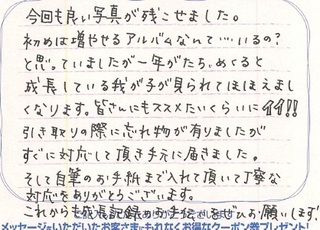 今回も良い写真が残こせました。
初めは増やせるアルバムなんて…いるの?
と思っていましたが一年がたち、めくると
成長している我が子が見られてほほえまし
くなります。皆さんにもススメたいくらいにイイ!!
引き取りの際に忘れ物が有りましたが
すぐに対応して頂き手元に届きました。
そして自筆のお手紙まで入れて頂いて丁寧な
対応をありがとうございます。
これからも成長記録のお手伝いをぜひお願いします!
メッセージをいただいたお客さまにもれなくお得なクーポン券プレゼント!